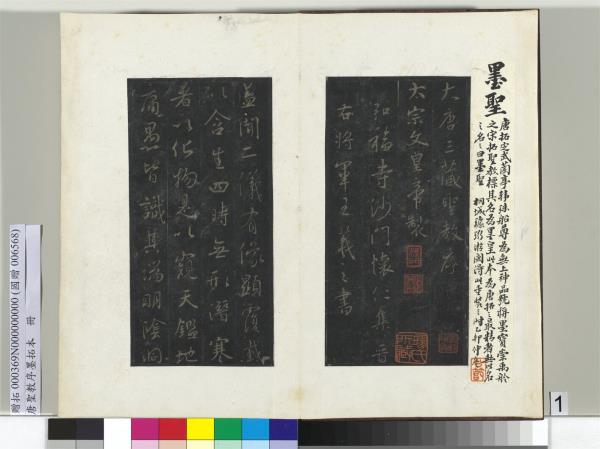 墨聖
唐拓定武蘭亭韓珠船尊為無上神品號將墨寶
之宗拓聖教標其名為墨皇此本為唐拓之最精者無以名
之名之曰墨聖
大唐三藏聖教序
太宗文皇帝製
弘福寺沙門懷仁集晉
右將軍王羲之書
蓋聞二儀有像顯覆載
以含生四時無形潛寒
暑以化物是以窺天鑑地
庸愚皆識其端明陰洞
贈拓 000369N000000000 (國贈 006568)
唐聖教序墨拓本 冊
1